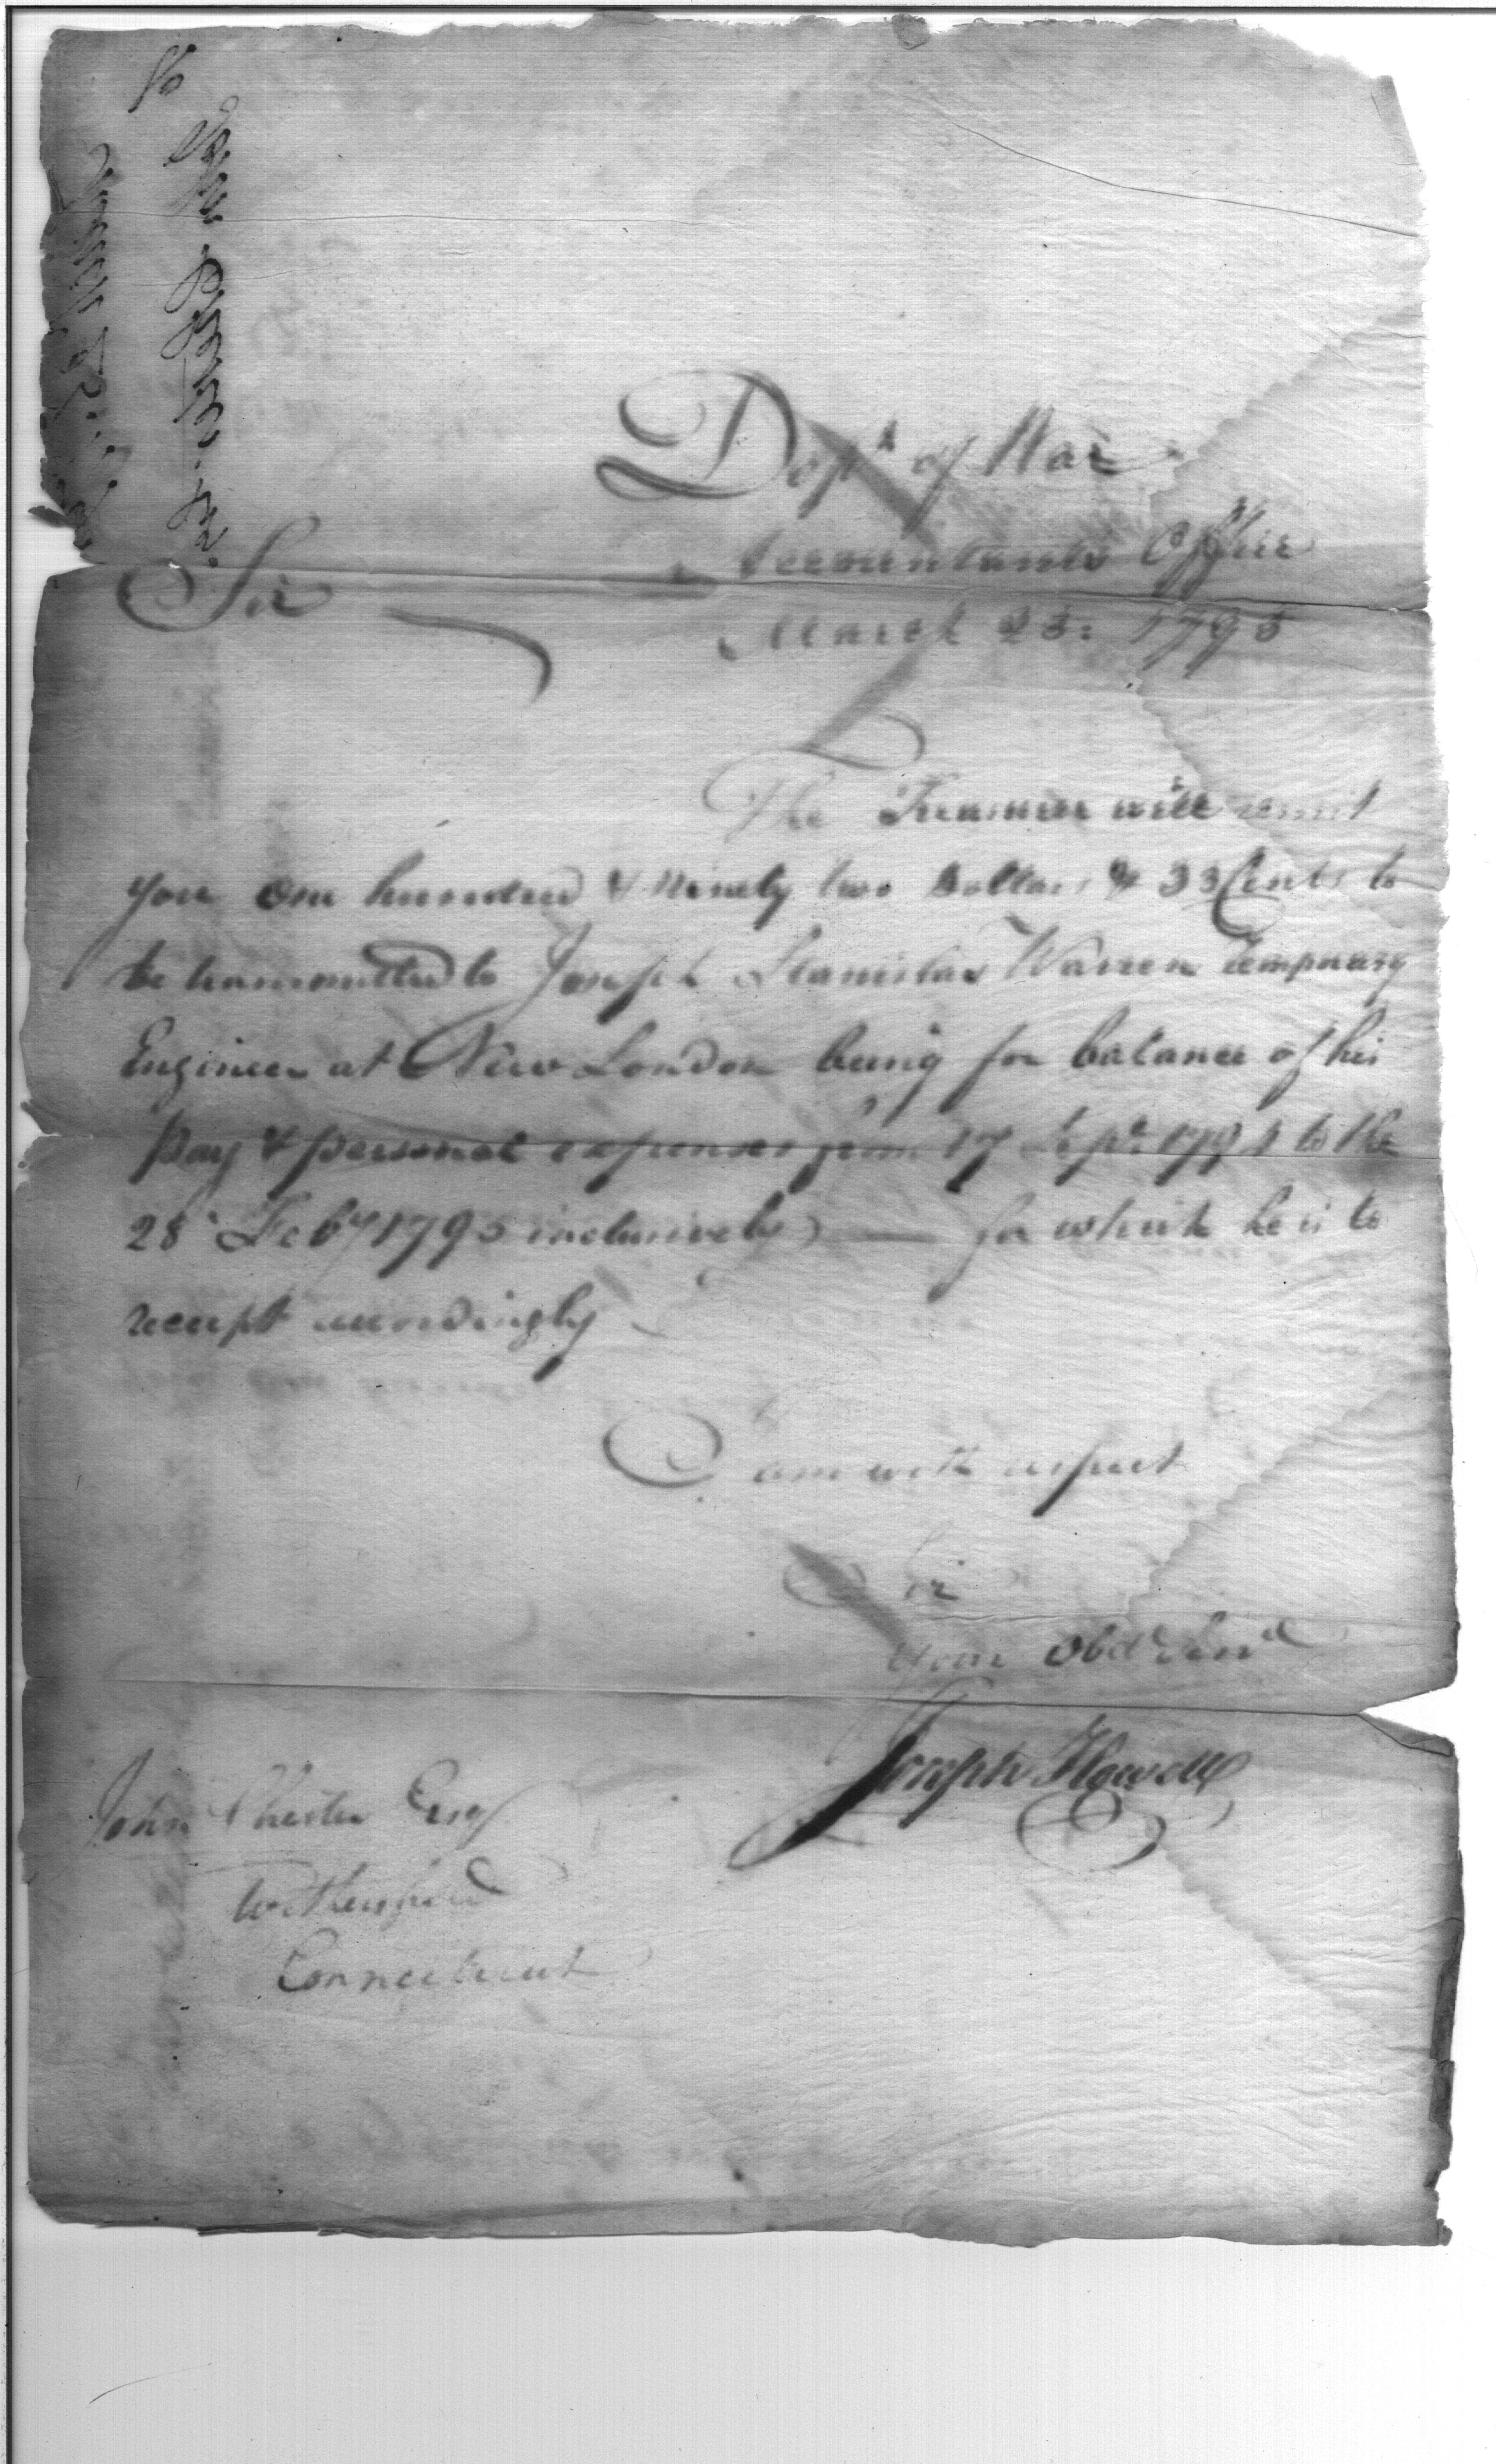 Dept of War
Accountants Office
Sir
March 23: 1795
The Treasurer will remit
you One hundred & Ninety two Dollars & 33 Cents to
be transmitted to Joseph Stanislas Warren temporary
Engineer at New London being for balance of his
pay & personal expenses from 17 Sept 1794 to the
28 Feby 1795 inclusively — for which he is to
receipt accordingly
I am with respect
Sir
Your Obdt Servt
Joseph Howell
John Chester Esq
Wethersfield
Connecticut